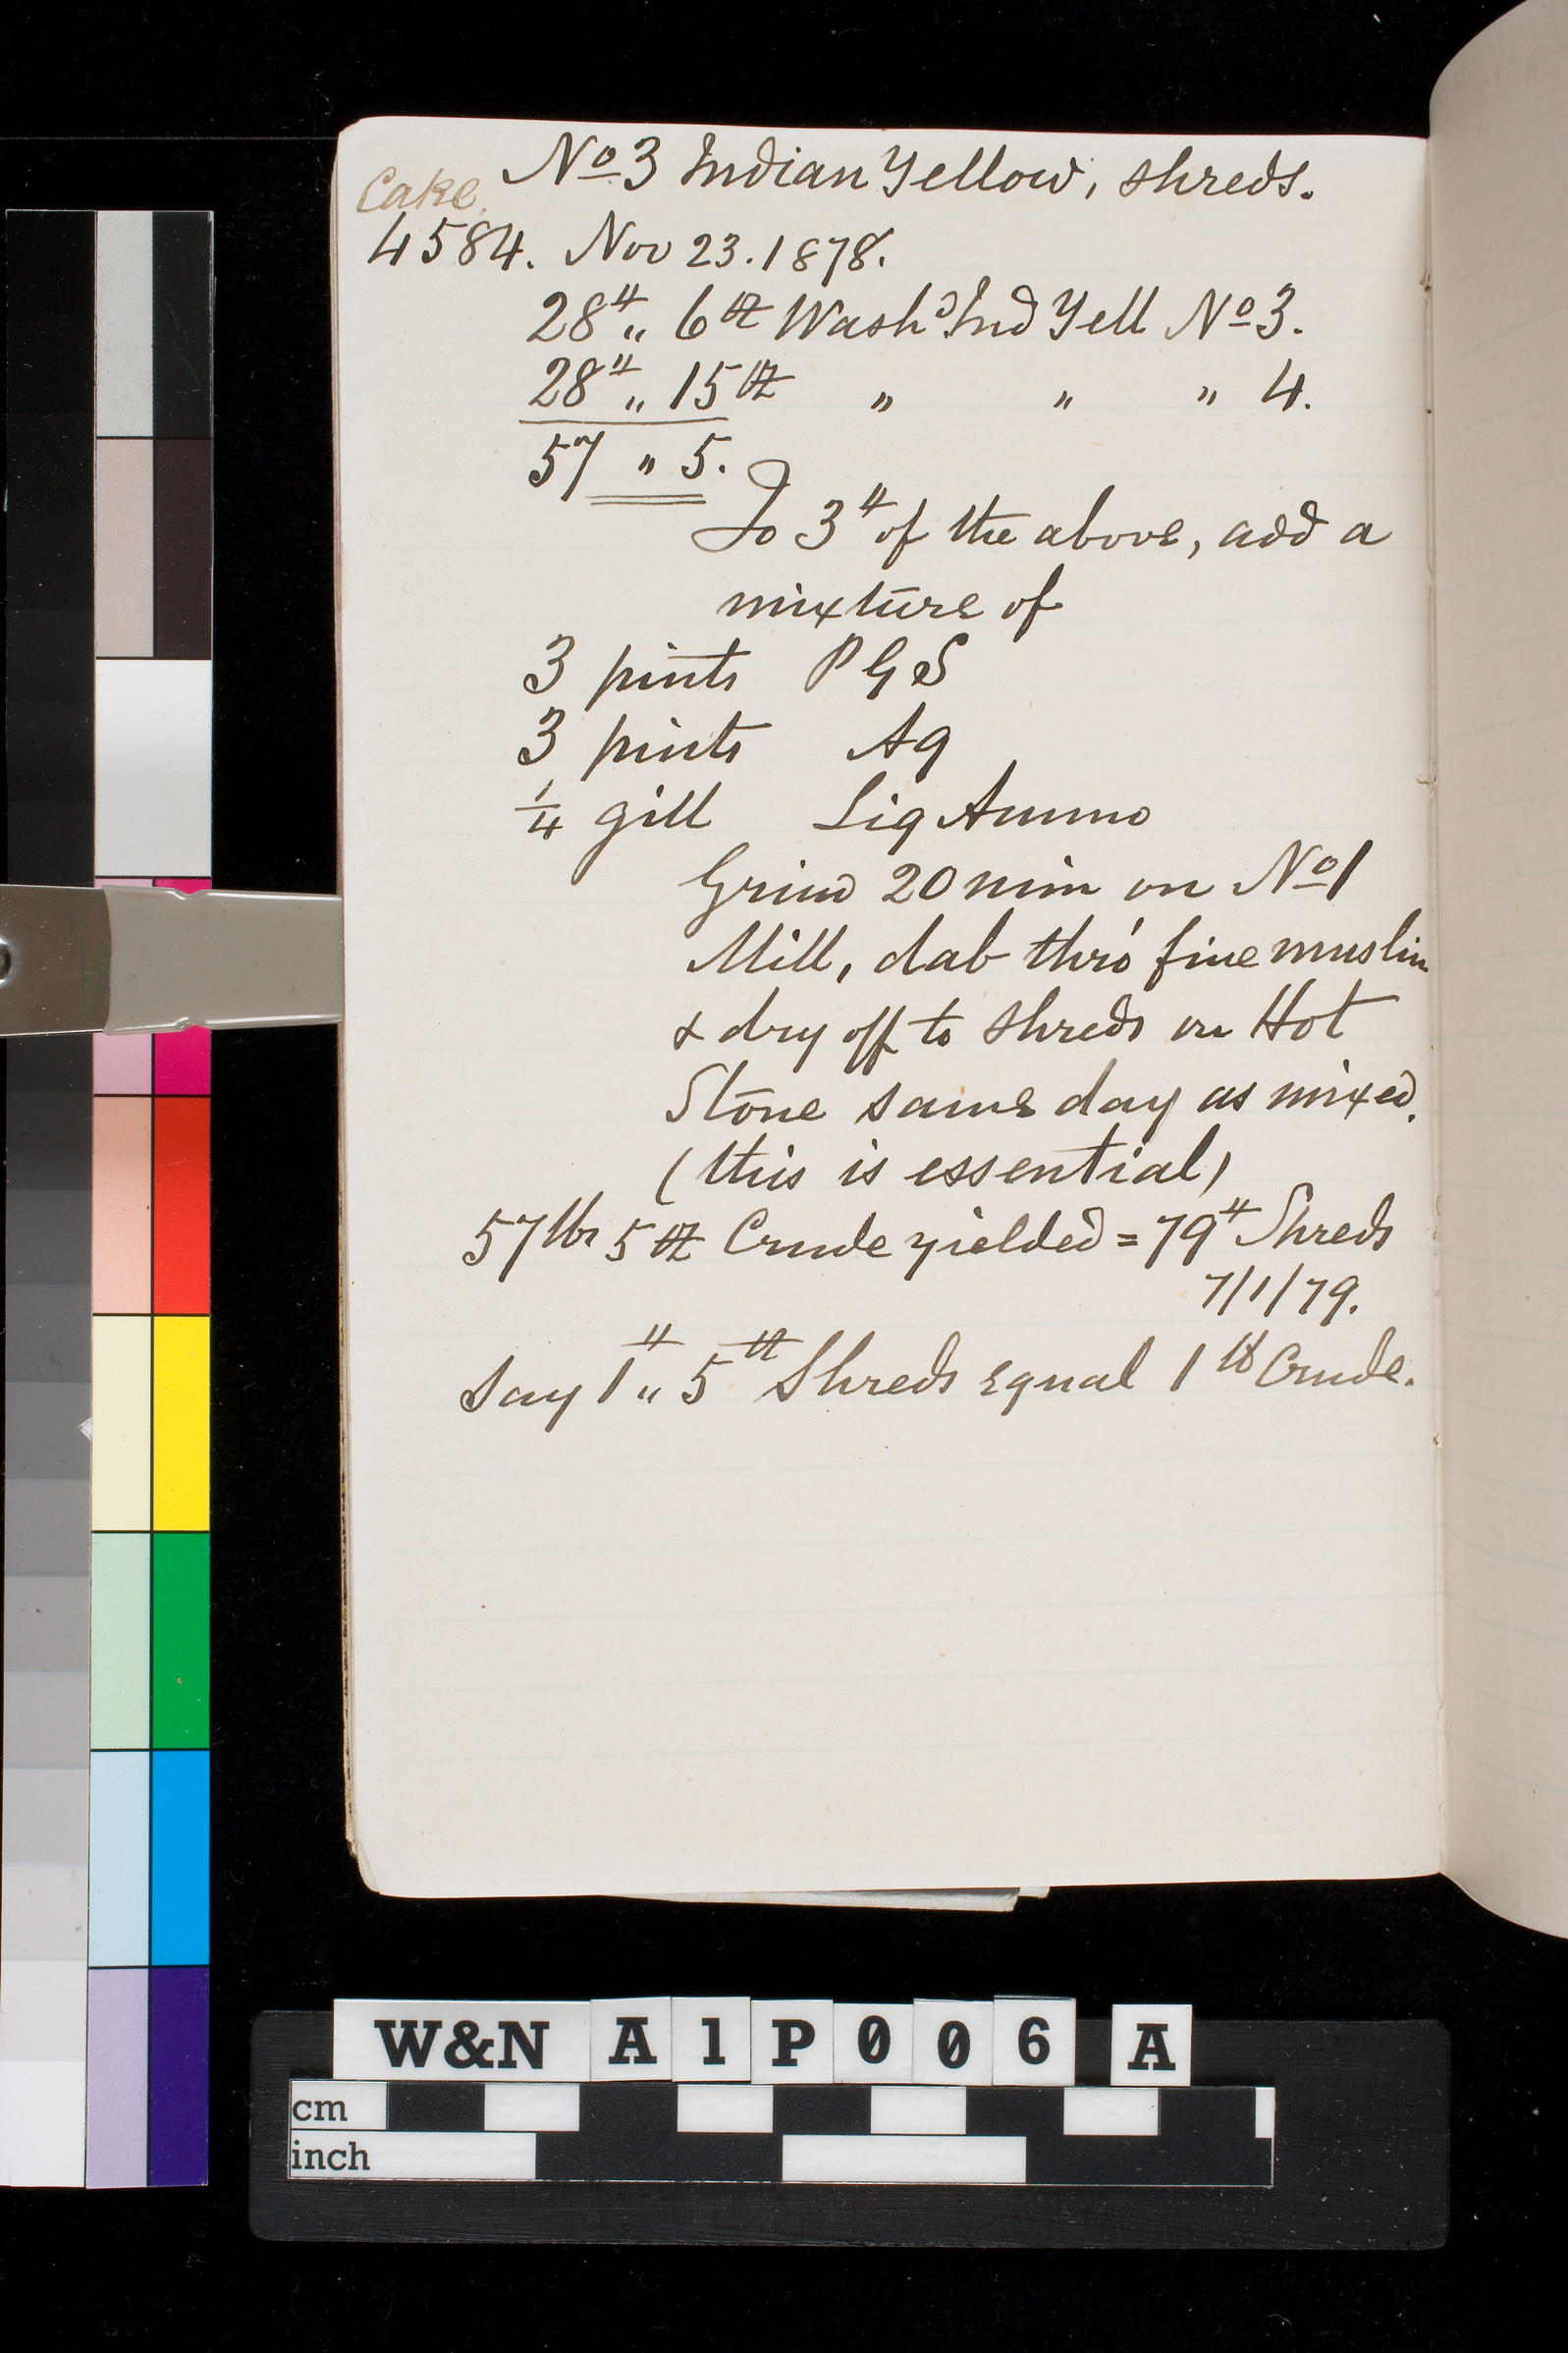 No 3 Indian Yellow, shreds.
Cake.
4584. Nov 23. 1878.
28lb „ 6oz Washd Ind Yell No 3.
28lb „ 15oz „ „ „ 4.
57 „ 5.
To 3lb of the above, add a
mixture of
3 pints P G S
3 pints Aq
1/4 gill Liq Ammo
Grind 20 min on No 1
Mill, dab thro' fine muslin
& dry off to shreds on Hot
Stone same day as mixed.
(this is essential)
57 lbs 5 oz Crude yielded = 79lb Shreds
7/1/79.
Say 1lb „ 5oz Shreds equal 1 lb Crude.
W&N A1P006 A
cm
inch